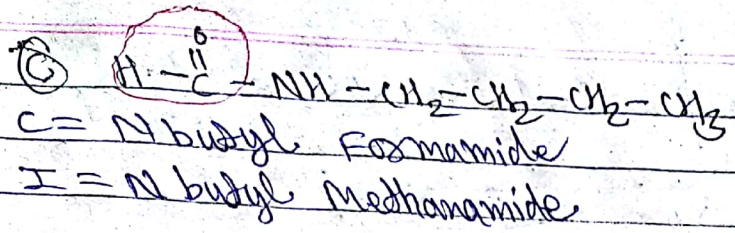 C H-C(=O)-NH-CH2-CH2-CH2-CH3
C = N butyl Formamide
I = N butyl Methanamide